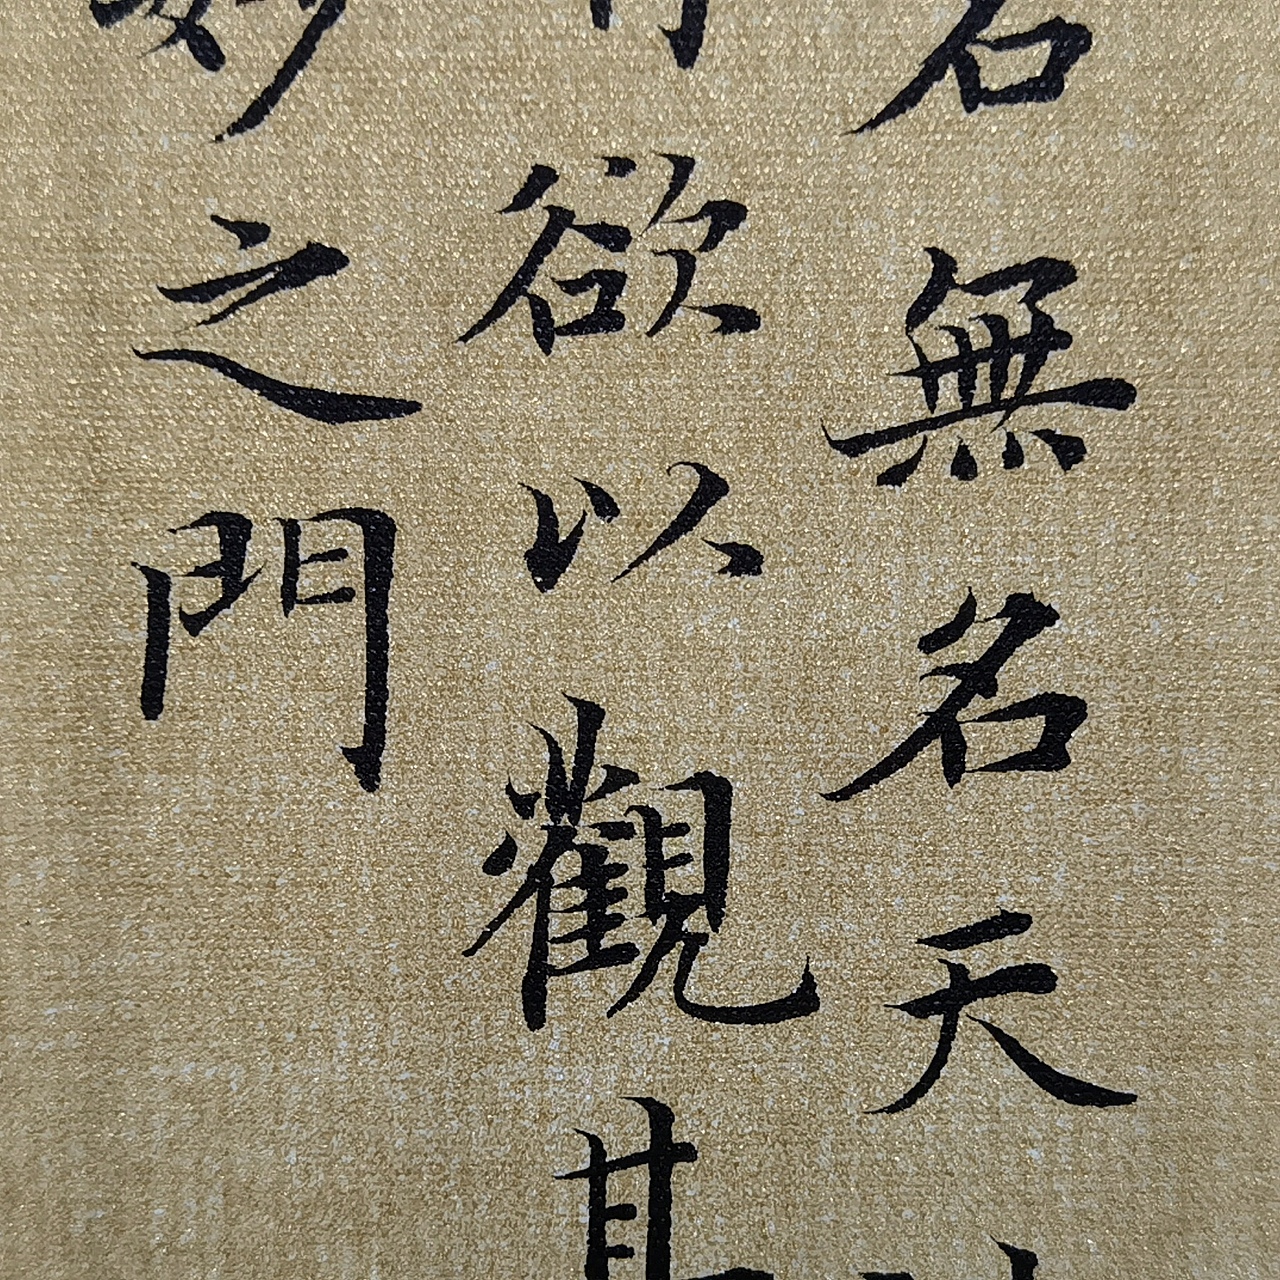 名無名天
有欲以觀其
妙之門